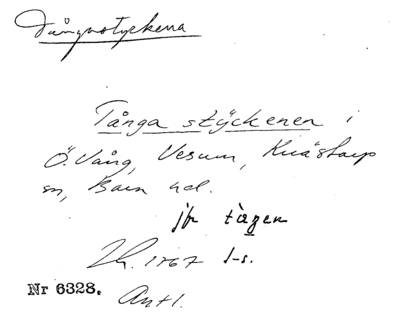 Tångastyckena
Tånga stÿckenen i
Ö. Vång, Vesum, Knästorp
sn, Bara hd.
jfr tågen
Lh. 1767 J-s.
Nr 6328. Ant1.